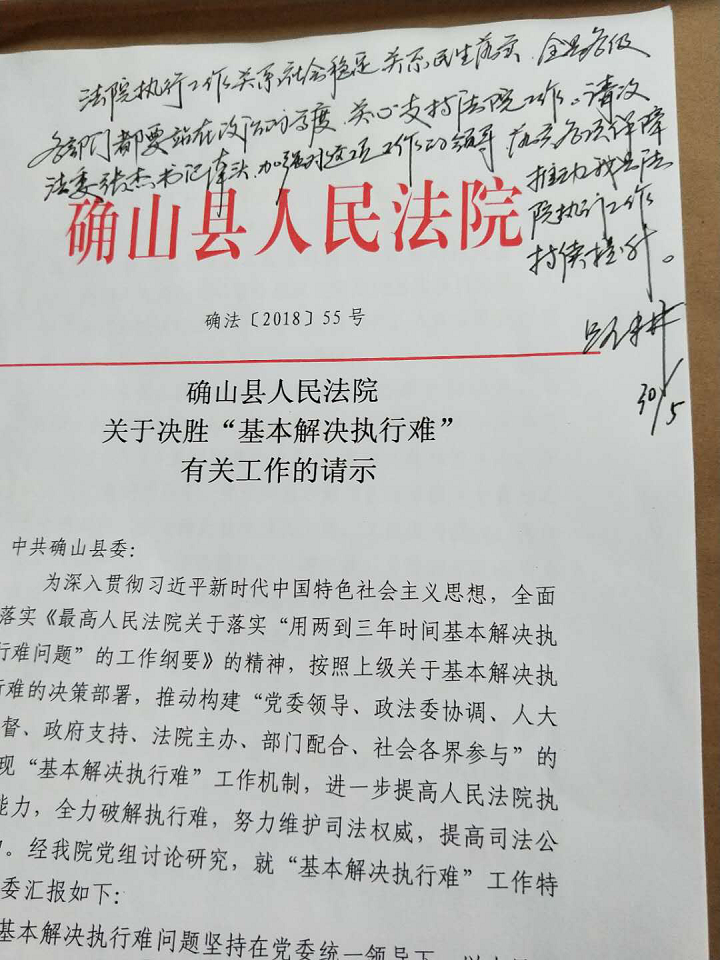 法院执行工作关系社会稳定关系民生落实,全县各级
各部门都要站在政治的高度,关心支持法院工作。请政
法委张杰书记牵头,加强对这项工作的领导,落实各项保障
推动我县法
院执行工作
持续提升。
30/5
确山县人民法院
确法〔2018〕55号
确山县人民法院
关于决胜“基本解决执行难”
有关工作的请示
中共确山县委:
为深入贯彻习近平新时代中国特色社会主义思想,全面
落实《最高人民法院关于落实“用两到三年时间基本解决执
行难问题”的工作纲要》的精神,按照上级关于基本解决执
行难的决策部署,推动构建“党委领导、政法委协调、人大
督、政府支持、法院主办、部门配合、社会各界参与”的
现“基本解决执行难”工作机制,进一步提高人民法院执
能力,全力破解执行难,努力维护司法权威,提高司法公
。经我院党组讨论研究,就“基本解决执行难”工作特
委汇报如下:
基本解决执行难问题坚持在党委统一领导下